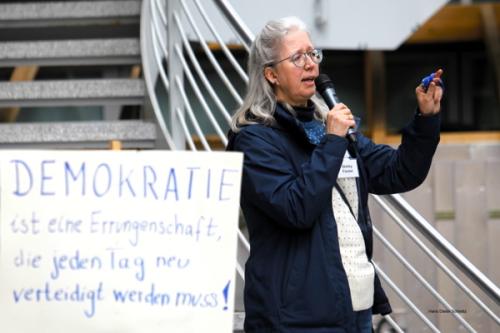 DEMOKRATIE
ist eine Errungenschaft,
die jeden Tag neu
verteidigt werden muss!